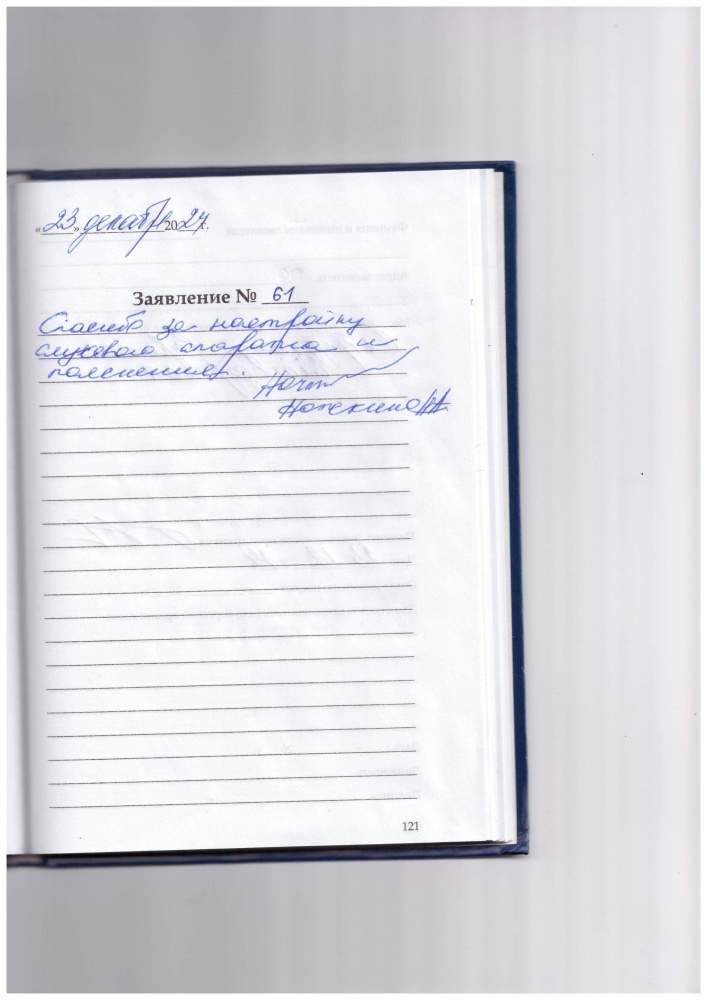 «23» декабря 2024 г.
Заявление № 61
Спасибо за настройку
слухового апарата и
пояснение.
121